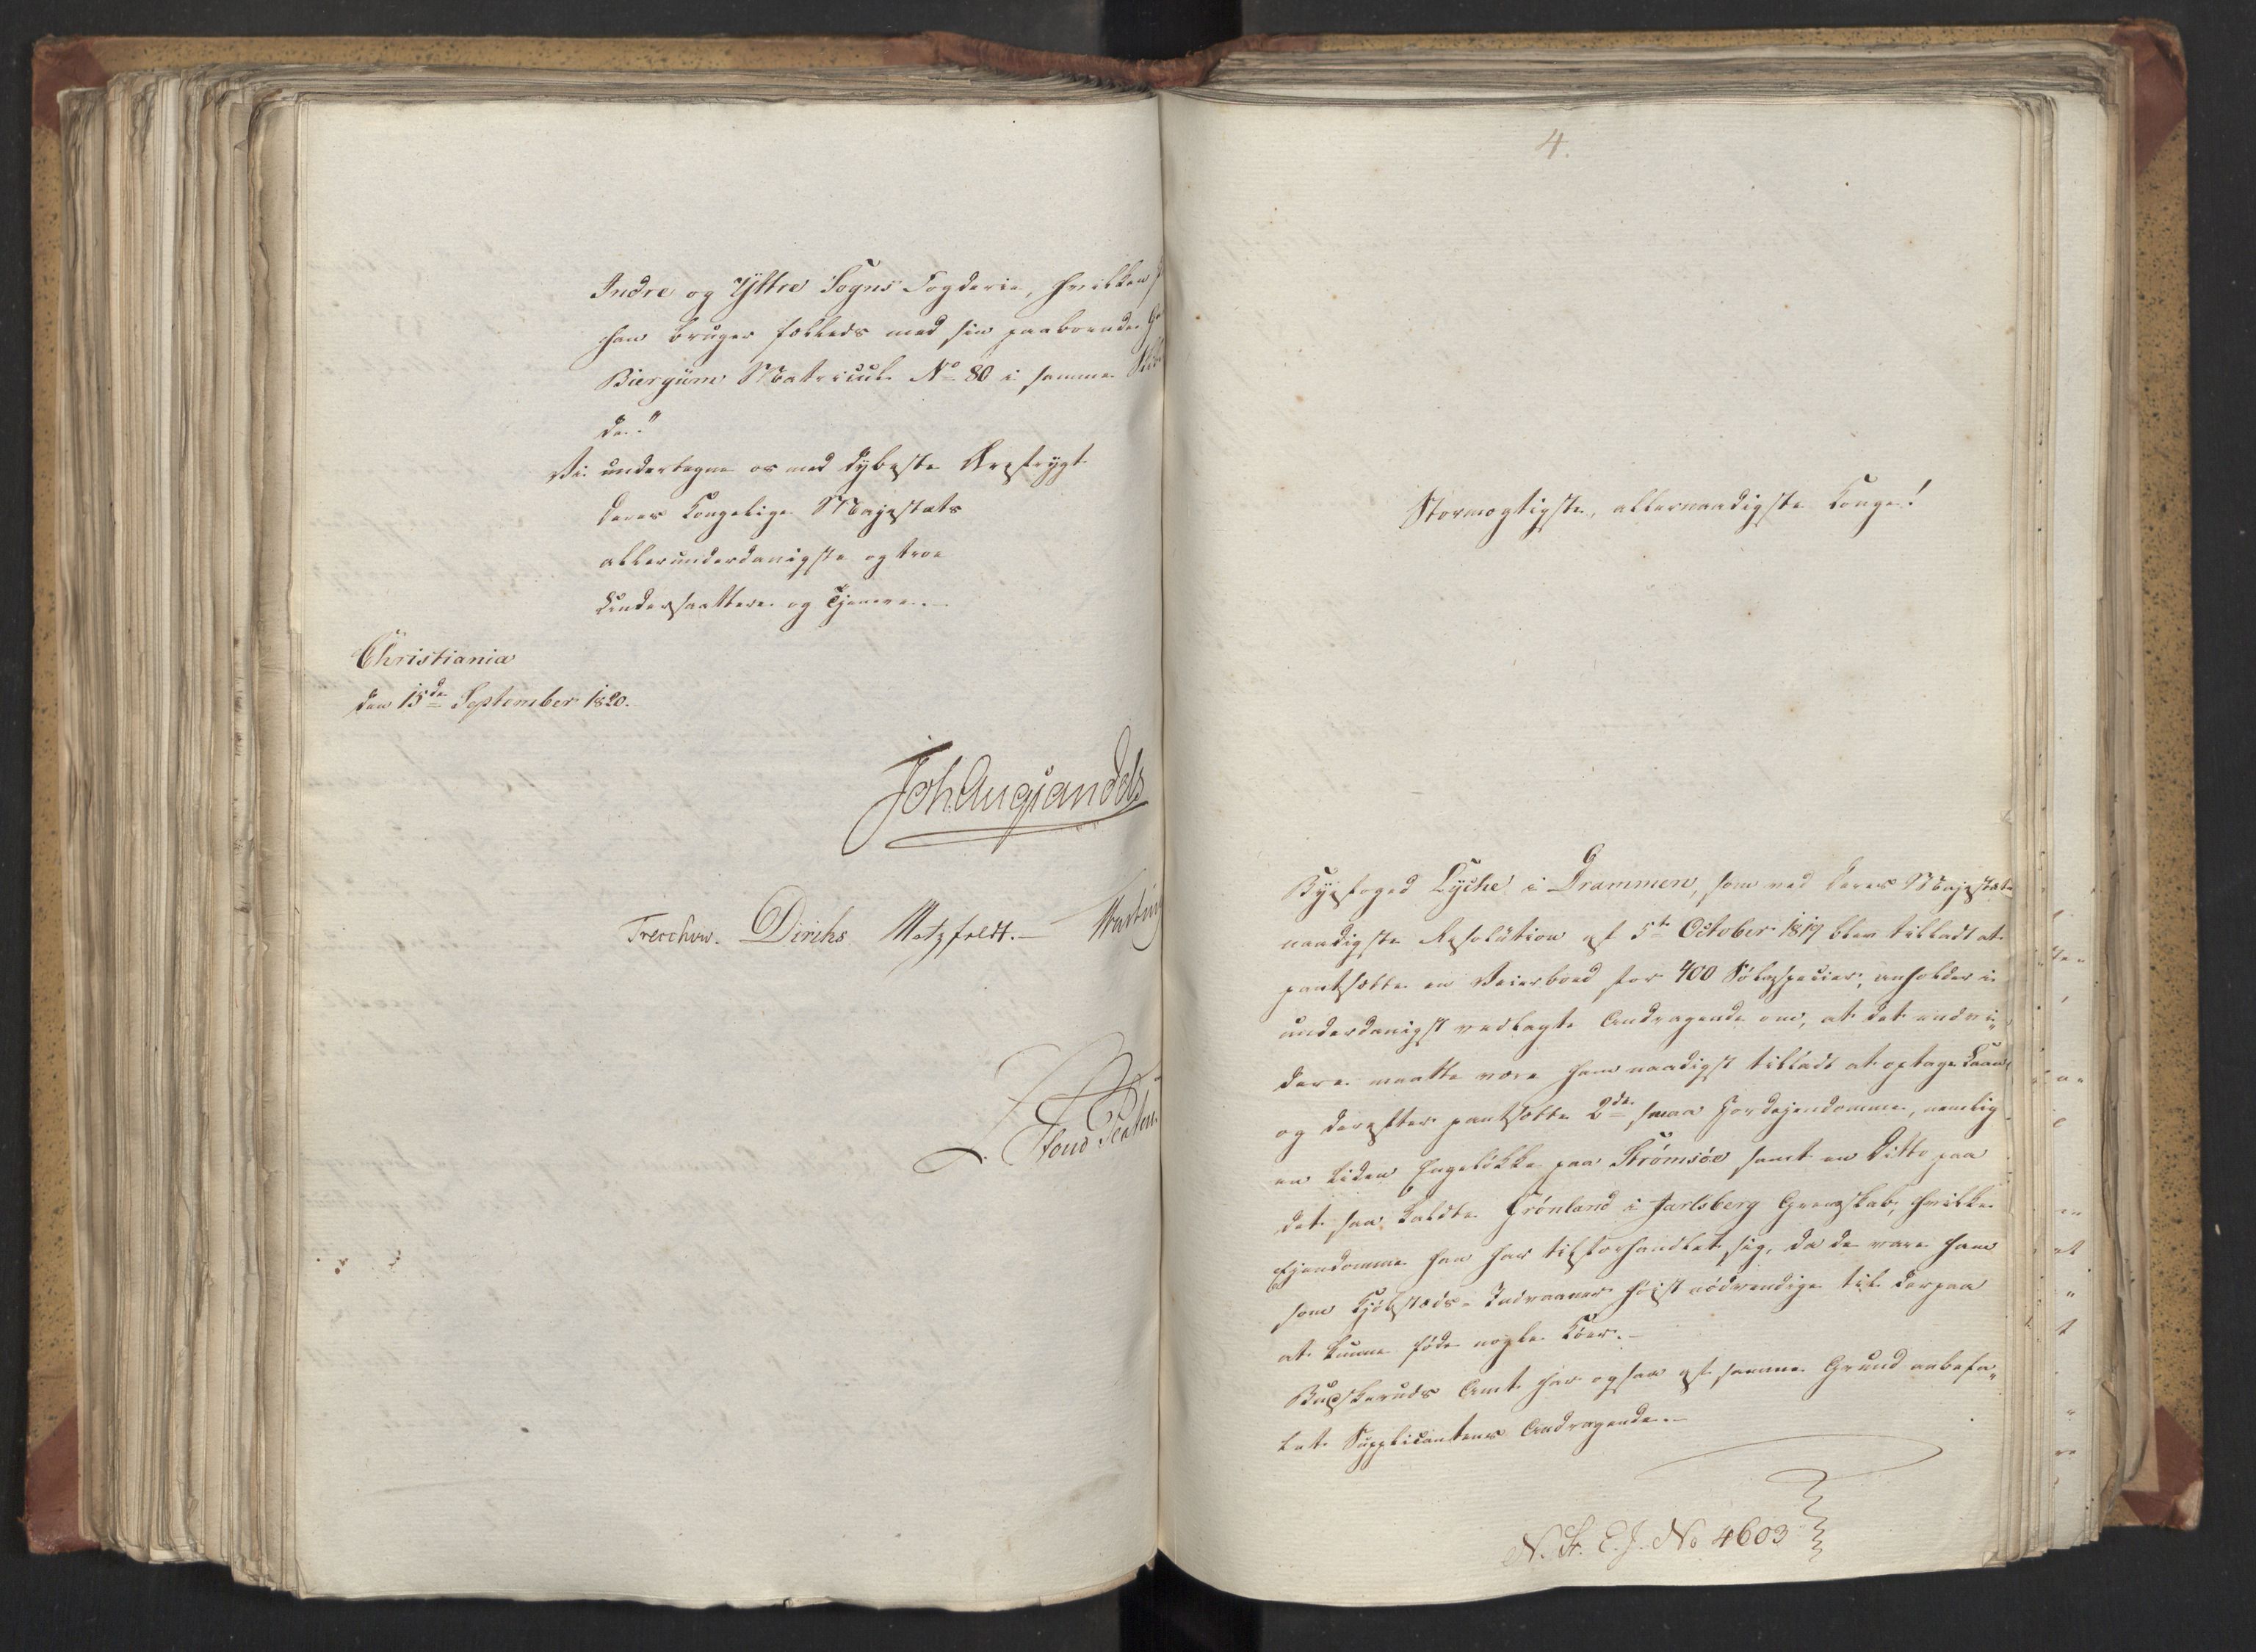 Indre og Yttre Sogns Fogderie, hvilken
han bruger fælleds med sin paaboende
Biergum Matricul No 80 i samme
de."
Vi undertegne os med dybeste Ærefrygt
Deres Kongelige Majestæts
allerunderdanigste og troe
Undersaattere og Tjenere.
Christiania
den 15de September 1820.
Joh. Aug. Sandels
Treschow. Diriks Motzfeldt.
4.
Stormægtigste, allernaadigste Konge!
Byefoged Lyche i Drammen, som ved Deres Majestæts
naadigste Resolution af 5te October 1819 blev tilladt at
pantsætte en Veierboed for 400 Sølvspecier, anholder i
underdanigst vedlagte Andragende om, at det endvi„
dere maatte være ham naadigst tilladt at optage Laan
og derefter pantsætte 2de smaa Jordejendomme, nemlig
en liden Engeløkke paa Strømsøe samt en Ditto paa
det saa kaldte Grønland i Jarlsberg Grevskab, hvilke
Ejendomme han har tilforhandlet sig, da de vare ham
som Kjøbstæds-Indvaaner høist nødvendige til derpaa
at kunne føde nogle Køer.
Buskeruds Amt har ogsaa af samme Grund anbefa„
let Supplicantens Andragende.
N. St. E. J. No 4603